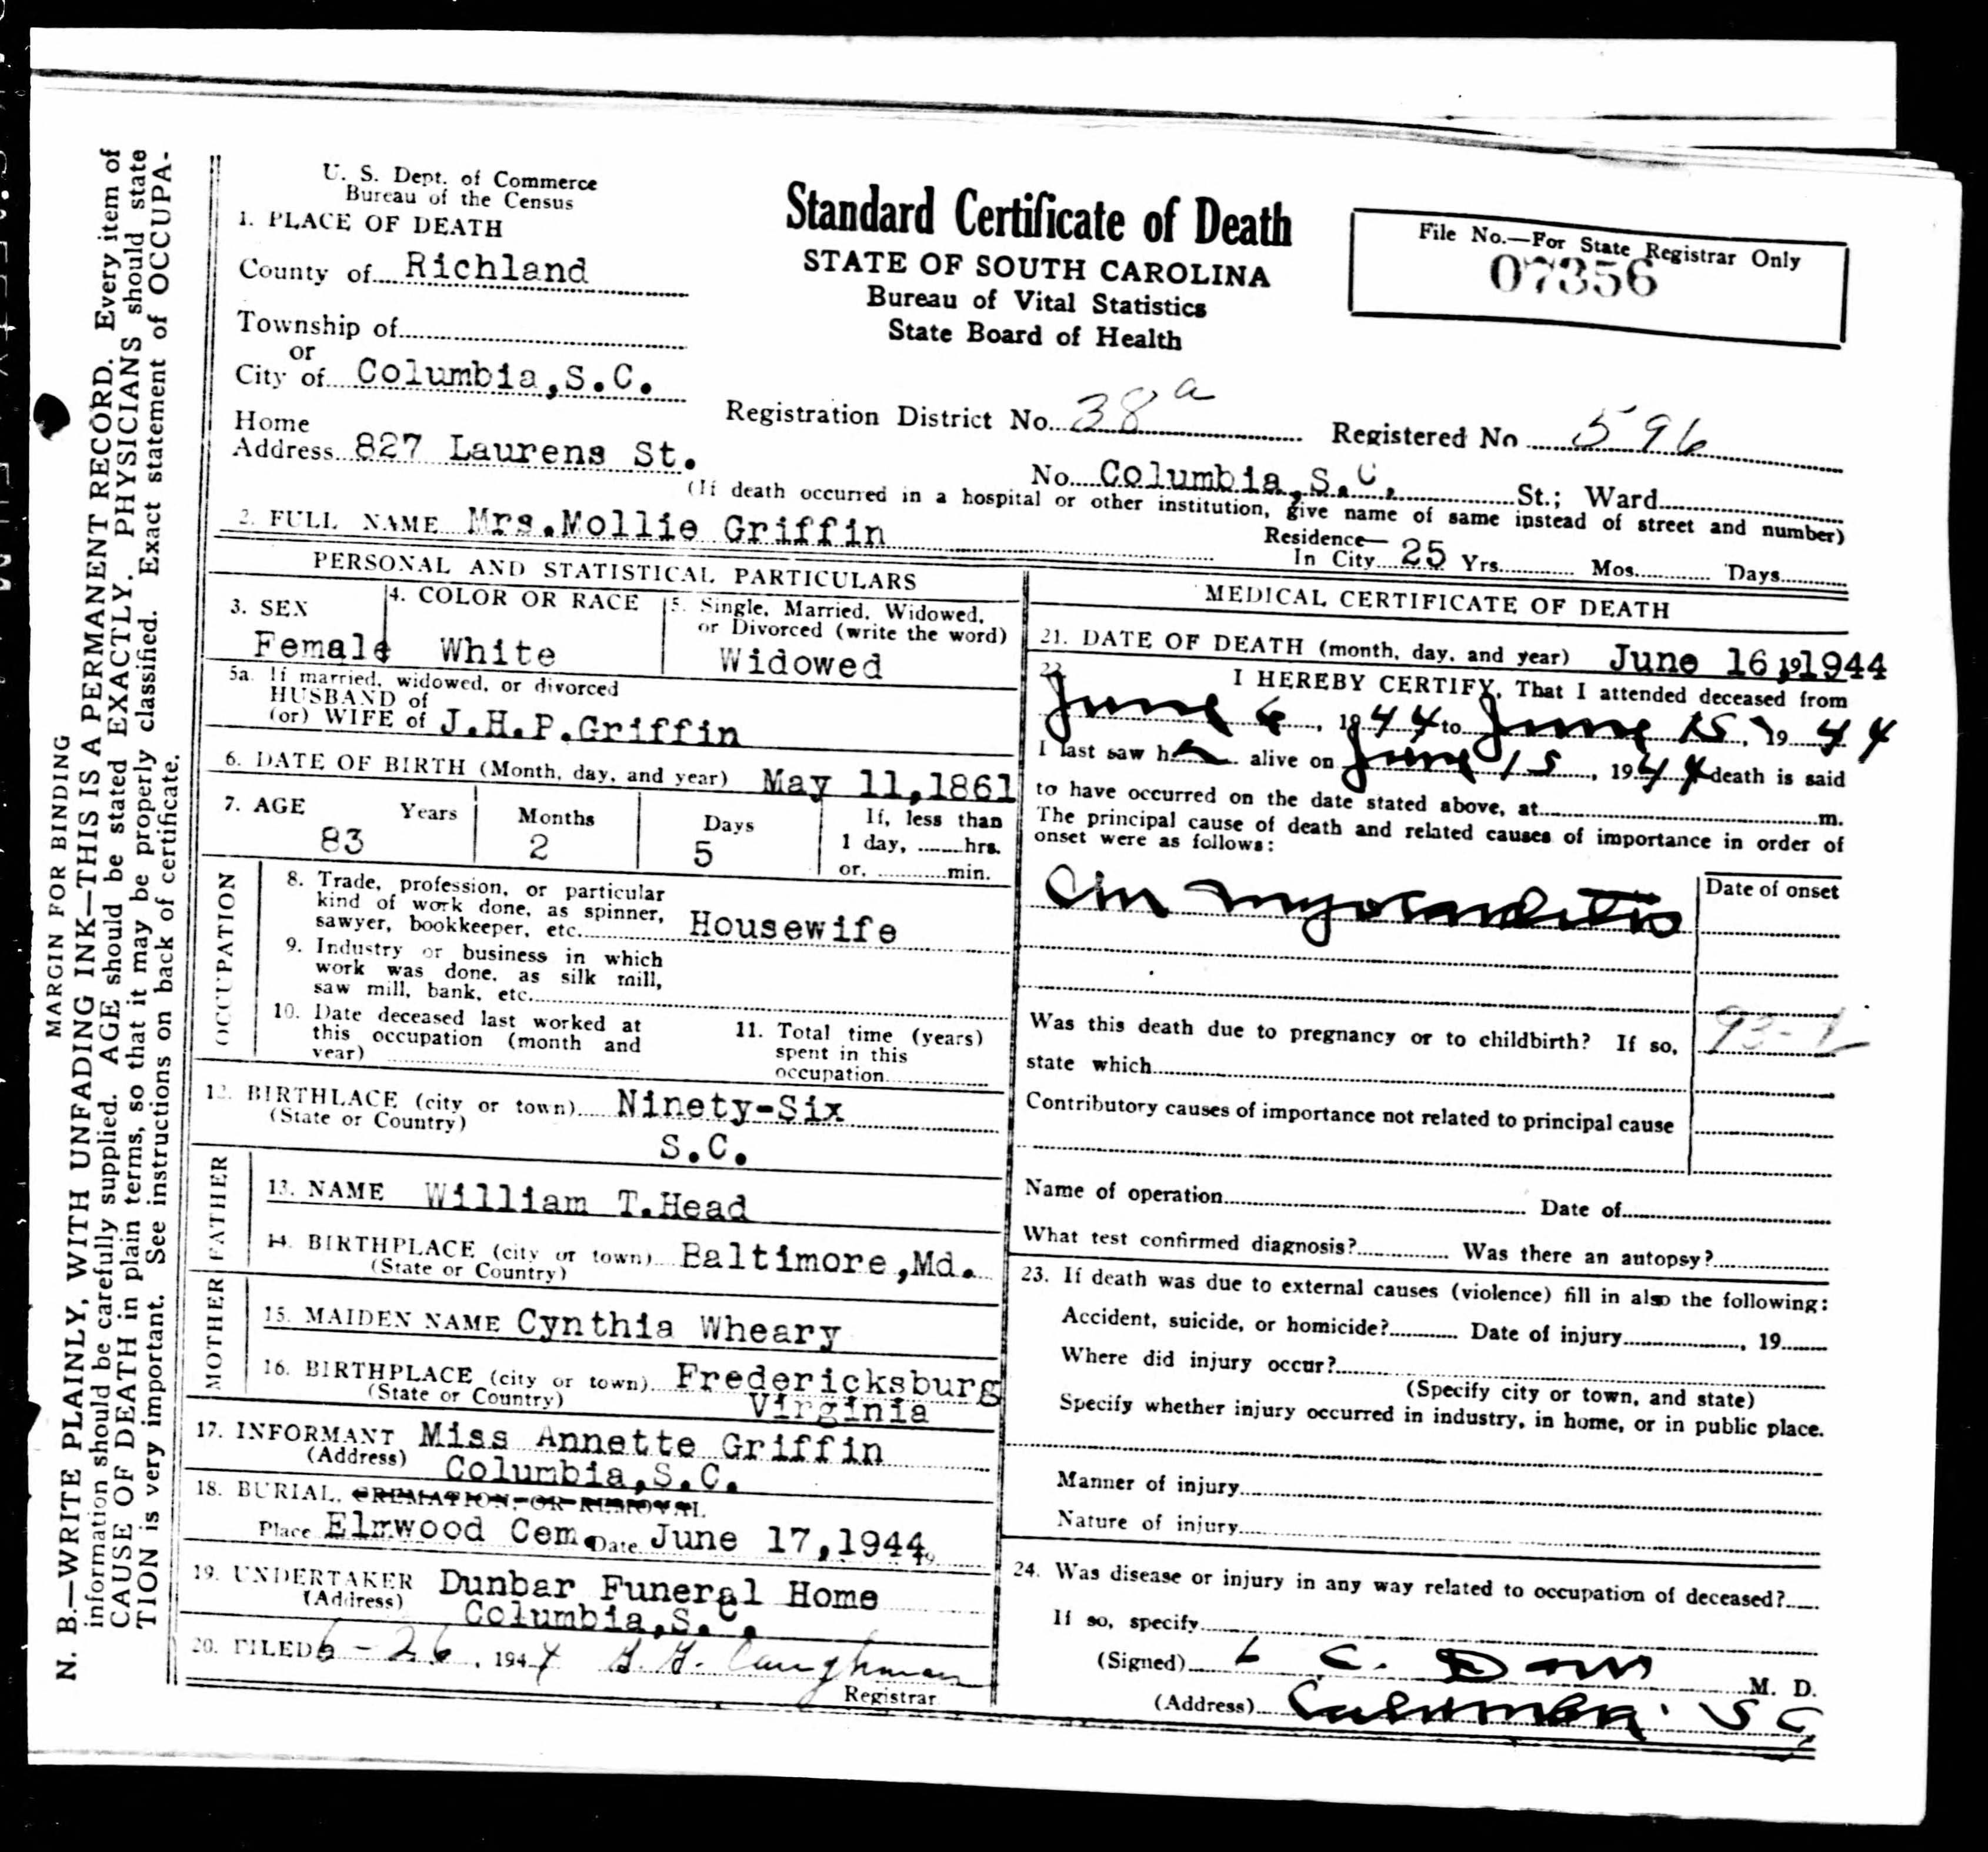 MARGIN FOR BINDING
N. B.—WRITE PLAINLY, WITH UNFADING INK—THIS IS A PERMANENT RECORD. Every item of
information should be carefully supplied. AGE should be stated EXACTLY. PHYSICIANS should state
CAUSE OF DEATH in plain terms, so that it may be properly classified. Exact statement of OCCUPA-
TION is very important. See instructions on back of certificate.
U. S. Dept. of Commerce
Bureau of the Census
Standard Certificate of Death
STATE OF SOUTH CAROLINA
Bureau of Vital Statistics
State Board of Health
File No.—For State Registrar Only
07356
1. PLACE OF DEATH
County of Richland
Township of
or
City of Columbia,S.C.
Registration District No. 38a
Registered No 596
Home
Address 827 Laurens St.
No. Columbia,S.C. St.; Ward
(If death occurred in a hospital or other institution, give name of same instead of street and number)
2. FULL NAME Mrs.Mollie Griffin
Residence—
In City 25 Yrs. Mos. Days
PERSONAL AND STATISTICAL PARTICULARS
3. SEX
Female
4. COLOR OR RACE
White
5. Single, Married, Widowed,
or Divorced (write the word)
Widowed
5a. If married, widowed, or divorced
HUSBAND of
(or) WIFE of J.H.P.Griffin
6. DATE OF BIRTH (Month, day, and year) May 11,1861
7. AGE Years Months Days If, less than
83 2 5 1 day, hrs.
or, min.
OCCUPATION
8. Trade, profession, or particular
kind of work done, as spinner,
sawyer, bookkeeper, etc. Housewife
9. Industry or business in which
work was done, as silk mill,
saw mill, bank, etc.
10. Date deceased last worked at
this occupation (month and
year)
11. Total time (years)
spent in this
occupation
12. BIRTHLACE (city or town) Ninety-Six
(State or Country)
S.C.
FATHER
13. NAME William T.Head
14. BIRTHPLACE (city or town) Baltimore,Md.
(State or Country)
MOTHER
15. MAIDEN NAME Cynthia Wheary
16. BIRTHPLACE (city or town) Fredericksburg
(State or Country) Virginia
17. INFORMANT Miss Annette Griffin
(Address) Columbia,S.C.
18. BURIAL, CREMATION, OR REMOVAL
Place Elmwood Cem. Date June 17,1944
19. UNDERTAKER Dunbar Funeral Home
(Address) Columbia,S.C.
20. FILED 6-26, 1944
Registrar
MEDICAL CERTIFICATE OF DEATH
21. DATE OF DEATH (month, day, and year) June 16,191944
22. I HEREBY CERTIFY, That I attended deceased from
June 6, 1944 to June 15, 1944
I last saw her alive on June 15, 1944 death is said
to have occurred on the date stated above, at m.
The principal cause of death and related causes of importance in order of
onset were as follows:
Date of onset
myocarditis
Was this death due to pregnancy or to childbirth? If so,
state which
Contributory causes of importance not related to principal cause
Name of operation Date of
What test confirmed diagnosis? Was there an autopsy?
23. If death was due to external causes (violence) fill in also the following:
Accident, suicide, or homicide? Date of injury, 19
Where did injury occur?
(Specify city or town, and state)
Specify whether injury occurred in industry, in home, or in public place.
Manner of injury
Nature of injury
24. Was disease or injury in any way related to occupation of deceased?
If so, specify
(Signed) M. D.
(Address) Columbia. S C